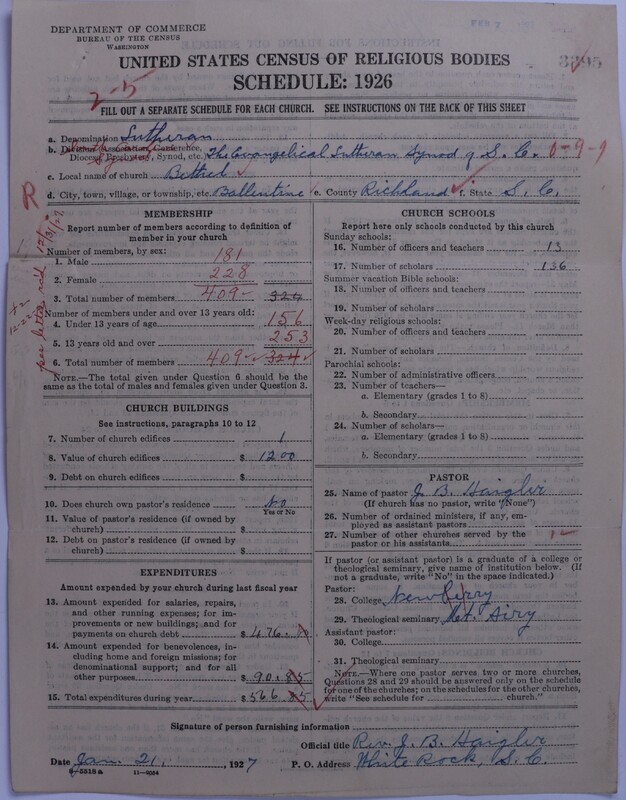 DEPARTMENT OF COMMERCE
BUREAU OF THE CENSUS
WASHINGTON
FEB 7
UNITED STATES CENSUS OF RELIGIOUS BODIES
3395
SCHEDULE: 1926
2-5
FILL OUT A SEPARATE SCHEDULE FOR EACH CHURCH. SEE INSTRUCTIONS ON THE BACK OF THIS SHEET
a. Denomination Lutheran
b. Division (Association, Conference, Diocese, Presbytery, Synod, etc.) The Evangelical Lutheran Synod of S. C. 0-9-9
c. Local name of church Bethel
d. City, town, village, or township, etc. Ballentine e. County Richland f. State S. C.
R
MEMBERSHIP
Report number of members according to definition of
member in your church
Number of members, by sex:
1. Male 181
2. Female 228
3. Total number of members 409 324
Number of members under and over 13 years old:
4. Under 13 years of age 156
5. 13 years old and over 253
6. Total number of members 409 324
NOTE.—The total given under Question 6 should be
same as the total of males and females given under Question 3.
CHURCH BUILDINGS
See instructions, paragraphs 10 to 12
7. Number of church edifices 1
8. Value of church edifices $ 1200
9. Debt on church edifices $
10. Does church own pastor's residence No
Yes or No
11. Value of pastor's residence (if owned by
church) $
12. Debt on pastor's residence (if owned by
church) $
EXPENDITURES
Amount expended by your church during last fiscal year
13. Amount expended for salaries, repairs,
and other running expenses; for im-
provements or new buildings; and for
payments on church debt $ 476.
14. Amount expended for benevolences, in-
cluding home and foreign missions; for
denominational support; and for all
other purposes $ 90.85
15. Total expenditures during year $ 566.85
CHURCH SCHOOLS
Report here only schools conducted by this church
Sunday schools:
16. Number of officers and teachers 13
17. Number of scholars 136
Summer vacation Bible schools:
18. Number of officers and teachers
19. Number of scholars
Week-day religious schools:
20. Number of officers and teachers
21. Number of scholars
Parochial schools:
22. Number of administrative officers
23. Number of teachers—
a. Elementary (grades 1 to 8)
b. Secondary
24. Number of scholars—
a. Elementary (grades 1 to 8)
b. Secondary
PASTOR
25. Name of pastor J. B. Haigler
(If church has no pastor, write "None")
26. Number of ordained ministers, if any, em-
ployed as assistant pastors
27. Number of other churches served by the
pastor or his assistants
If pastor (or assistant pastor) is a graduate of a college or
theological seminary, give name of institution below. (If
not a graduate, write "No" in the space indicated.)
Pastor:
28. College Newberry
29. Theological seminary Mt. Airy
Assistant pastor:
30. College
31. Theological seminary
NOTE.—Where one pastor serves two or more churches,
Questions 28 and 29 should be answered only on the schedule
for one of the churches; on the schedules for the other churches,
write "See schedule for ............ church."
Signature of person furnishing information
Official title Rev. J. B. Haigler
Date Jan. 21, 1927 P. O. Address White Rock, S. C.
8-5518a 11-9264